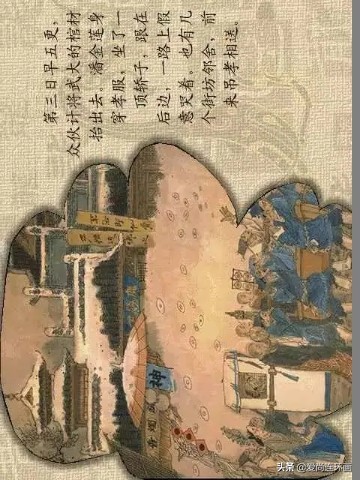 第三日早五更，
众伙计将武大的棺材
抬出去。潘金莲身
穿孝服，坐了一
顶轿子，跟在
后边，一路上假
意哭着。也有几
个街坊邻舍，前
来吊孝相送。
神
头条 @爱尚连环画